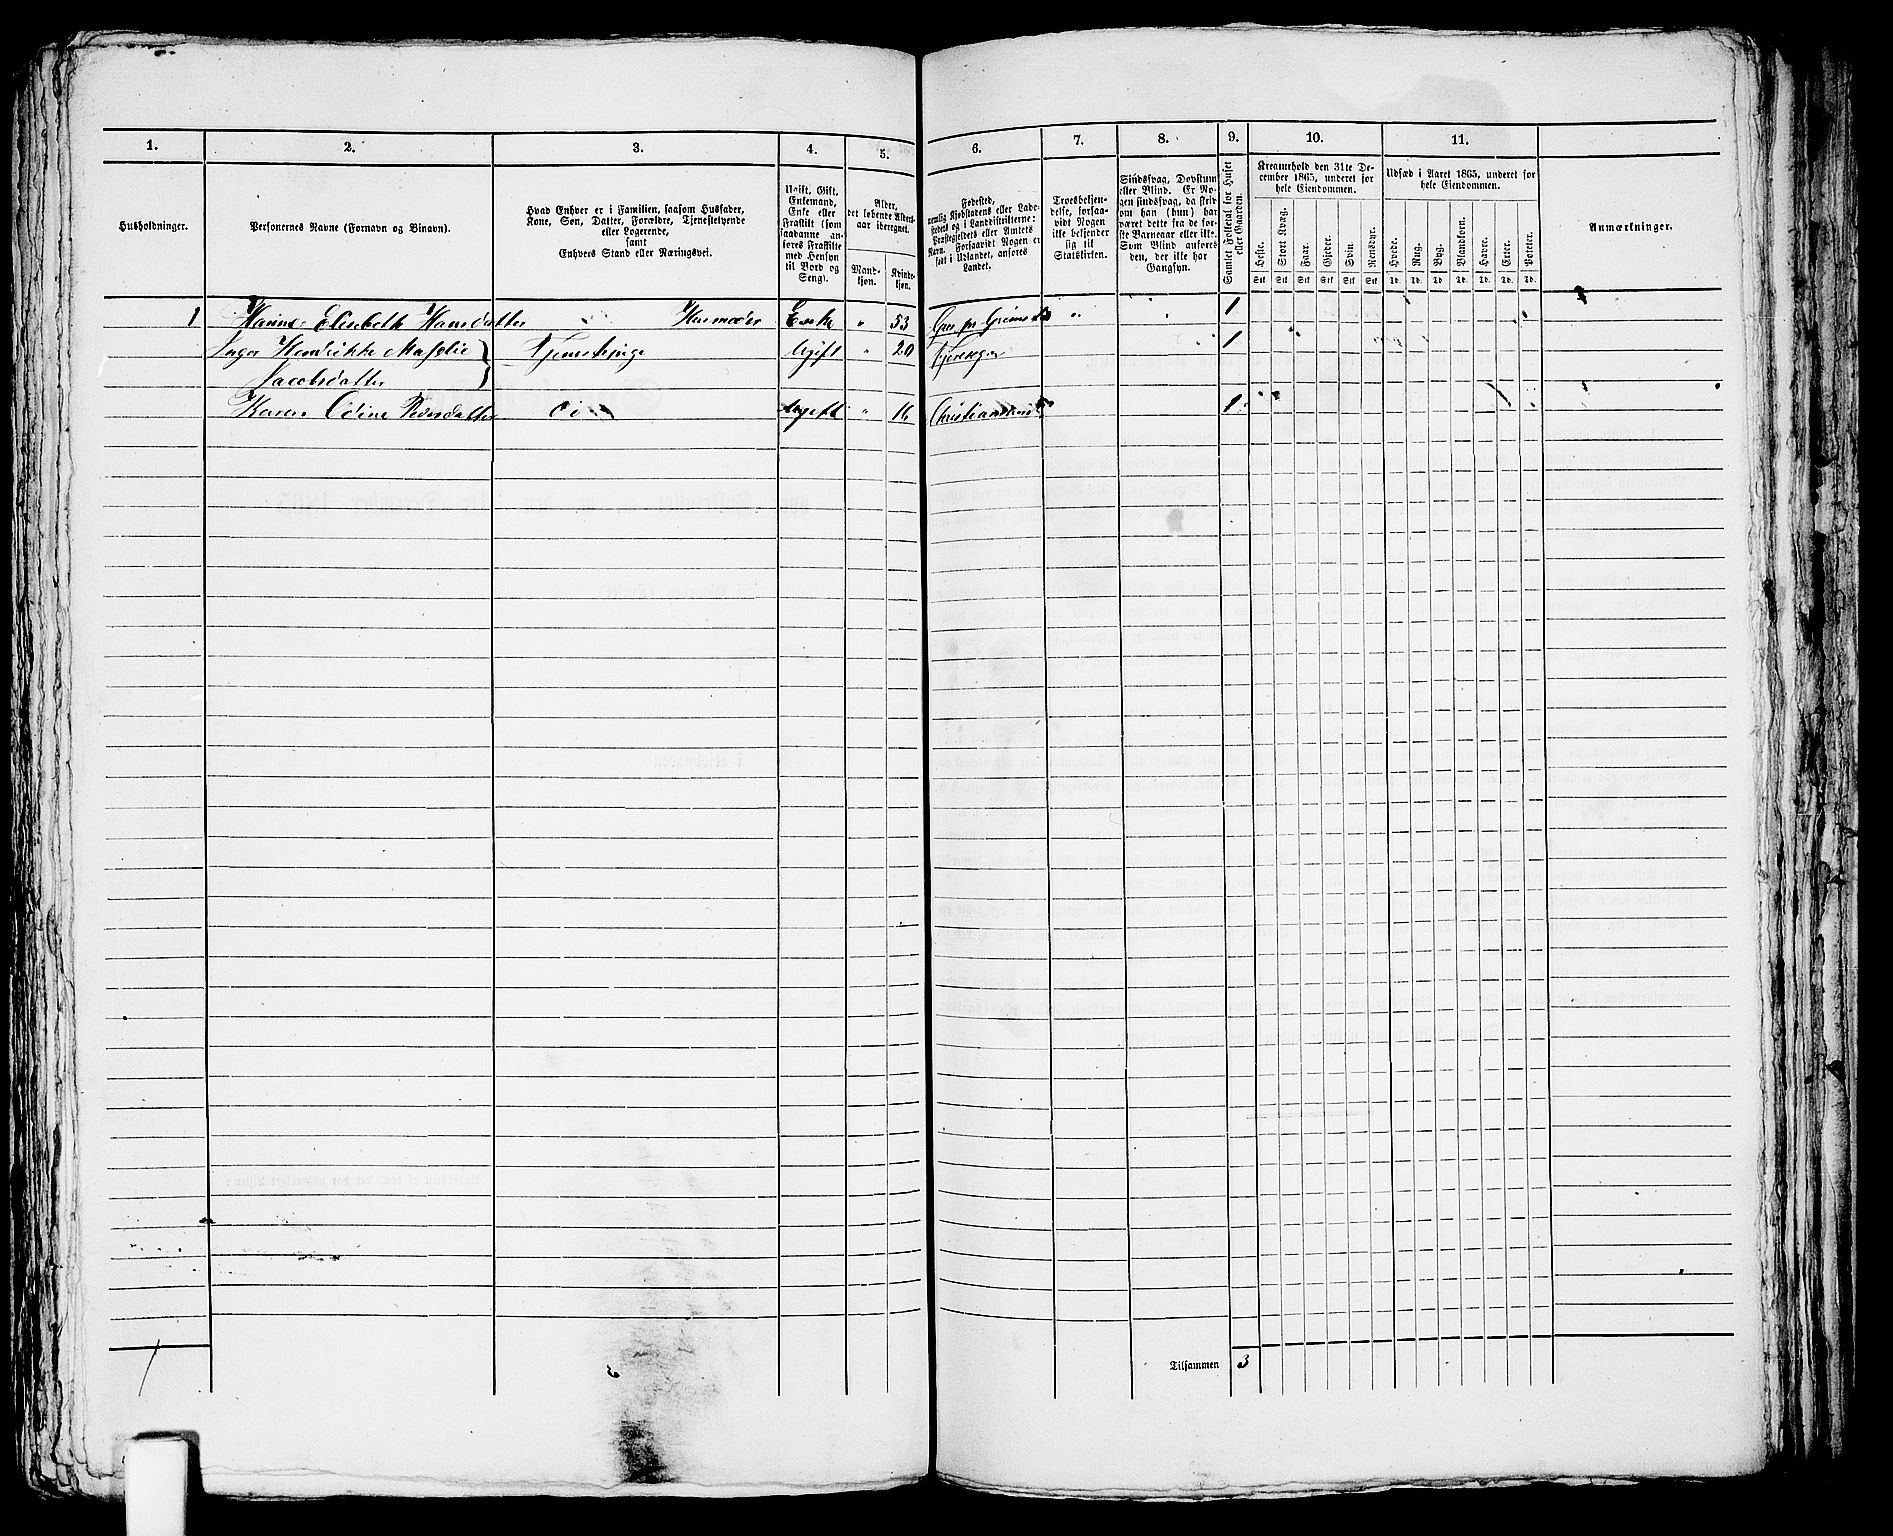 1. 2. 3. 4. 5. 6. 7. 8. 9. 10. 11.
Husholdninger.
Personernes Navne (Fornavn og Binavn).
Hvad Enhver er i Familien, saasom Husfader,
Kone, Søn, Datter, Forældre, Tjenestetyende
eller Logerende,
samt
Enhvers Stand eller Næringsvei.
Ugift, Gift,
Enkemand,
Enke eller
Fraskilt (som
saadanne an-
føres Fraskilte
med Hensyn
til Bord og
Seng).
Alder,
det løbende Alders-
aar iberegnet.
Mand-
kjøn.
Kvinde-
kjøn.
Fødested,
nemlig Kjøbstadens eller Lade-
stedets og i Landdistrikterne:
Præstegjeldets eller Amtets
Navn. Forsaavidt Nogen er
født i Udlandet, anføres
Landet.
Troesbekjen-
delse, forsaa-
vidt Nogen
ikke bekjender
sig til
Statskirken.
Sindssvag, Døvstum
eller Blind. Er No-
gen sindssvag, da skriv
om han (hun) har
været dette fra de før-
ste Barneaar eller ikke.
Som Blind anføres
den, der ikke har
Gangsyn.
Samlet Folketal for Huset
eller Gaarden.
Kreaturhold den 31te De-
cember 1865, underet for
hele Eiendommen.
Heste. Stort Kvæg. Faar. Gjeder. Svin. Rensdyr.
Stk Stk Stk Stk Stk Stk
Udsæd i Aaret 1865, underet for
hele Eiendommen.
Hvede. Rug. Byg. Blandkorn. Havre. Erter. Poteter.
Td. Td. Td. Td. Td. Td. Td.
Anmærkninger.
1 Hanne Elisebeth Hansdatter Husmoder Enke " 53 " " 1
Inger Hendrikke Mathelie Tjenestepige Ugift " 20 1
Jacobsdatter
Karen Odine Pedersdatter Do Ugift " 16 Christiansund 1
Tilsammen 3